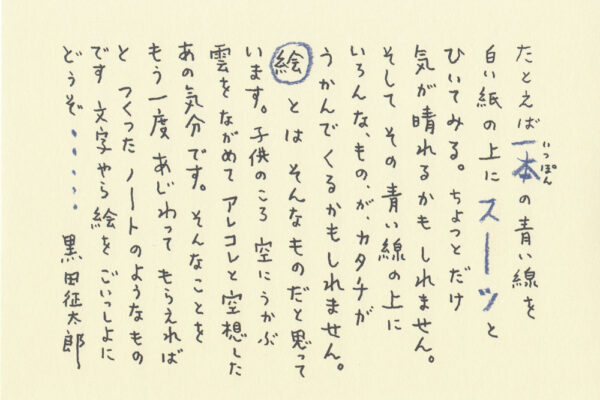 たとえば一本の青い線を
いっぽん
白い紙の上にスーッと
ひいてみる。ちょっとだけ
気が晴れるかもしれません。
そして その青い線の上に
いろんな、もの、が、カタチが
うかんでくるかもしれません。
絵とは そんなものだと思って
います。子供のころ 空にうかぶ
雲をながめて アレコレと空想した
あの気分です。そんなことを
もう一度 あじわって もらえれば
と つくった ノートのようなもの
です 文字やら絵をごいっしょに
どうぞ・・・・・・ 黒田征太郎